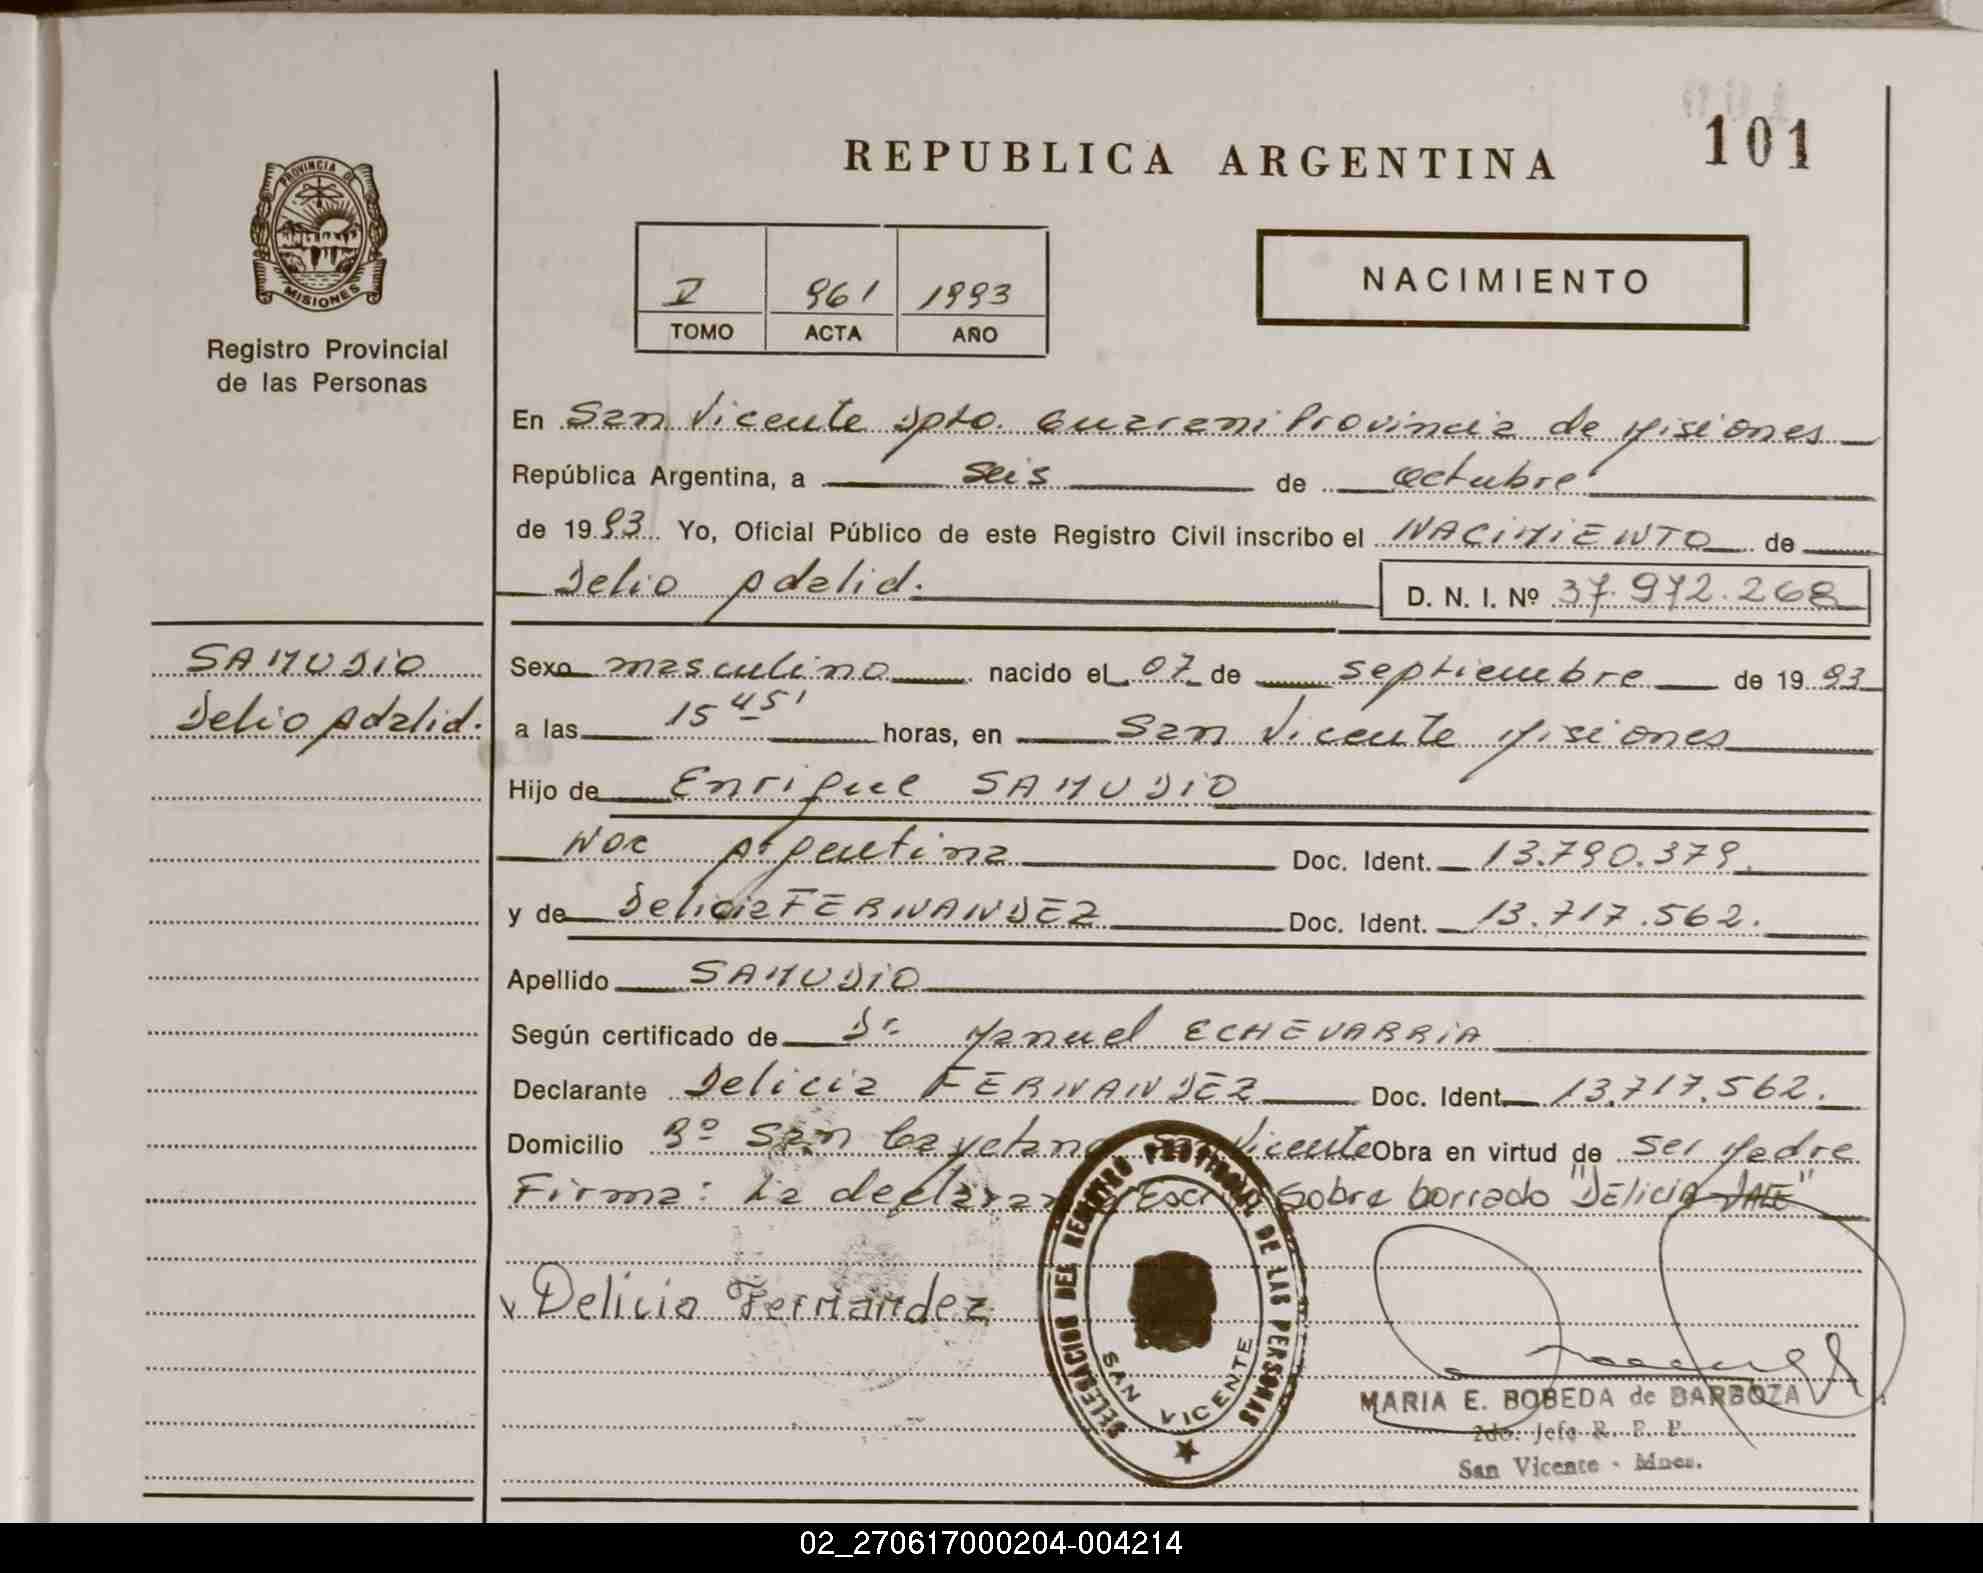 101
REPUBLICA ARGENTINA
PROVINCIA DE
MISIONES
Registro Provincial
de las Personas
V 961 1993
TOMO ACTA AÑO
NACIMIENTO
En San Vicente Dpto. Guarani Provincia de Misiones
República Argentina, a seis de octubre
de 1993 Yo, Oficial Público de este Registro Civil inscribo el NACIMIENTO de
Delio Adalid.
D. N. I. Nº 37.972.268
SAMUDIO
Delio Adalid.
Sexo masculino nacido el 07 de septiembre de 1993
a las 15 45' horas, en San Vicente Misiones
Hijo de Enrique SAMUDIO
Nac Argentina Doc. Ident. 13.790.379.
y de Delicia FERNANDEZ Doc. Ident. 13.717.562.
Apellido SAMUDIO
Según certificado de Dr. Manuel ECHEVARRIA
Declarante Delicia FERNANDEZ Doc. Ident. 13.717.562.
Domicilio Bº San Cayetano San Vicente Obra en virtud de ser Madre
Firma: La Sobre borrado "DElicia VALE"
v Delicia Fernandez
DELEGACION DEL REGISTRO PROVINCIAL DE LAS PERSONAS
SAN VICENTE
MARIA E. BOBEDA de BARBOZA
2do. Jefe R. P. P.
San Vicente - Mnes.
02_270617000204-004214